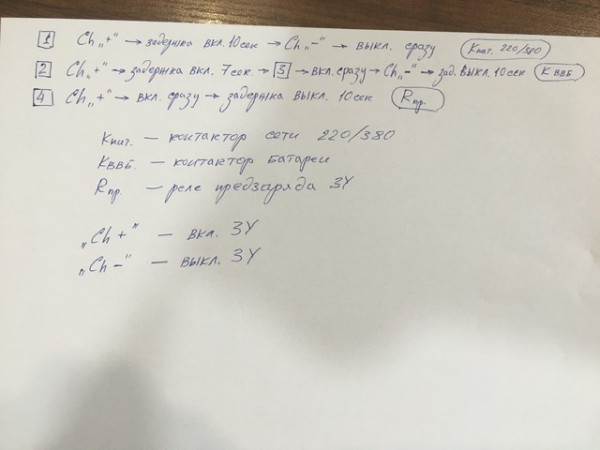 1 Ch „+" → задержка вкл. 10 сек → Ch „–" → выкл. сразу Kпит. 220/380
2 Ch „+" → задержка вкл. 7 сек. → 3 → вкл. сразу → Ch „–" → зад. выкл. 10 сек КВВБ
4 Ch „+" → вкл. сразу → задержка выкл. 10 сек Rпр.
Kпит. — контактор сети 220/380
КВВБ. — контактор батареи
Rпр. — реле предзаряда ЗУ
„Ch +" — вкл. ЗУ
„Ch –" — выкл. ЗУ